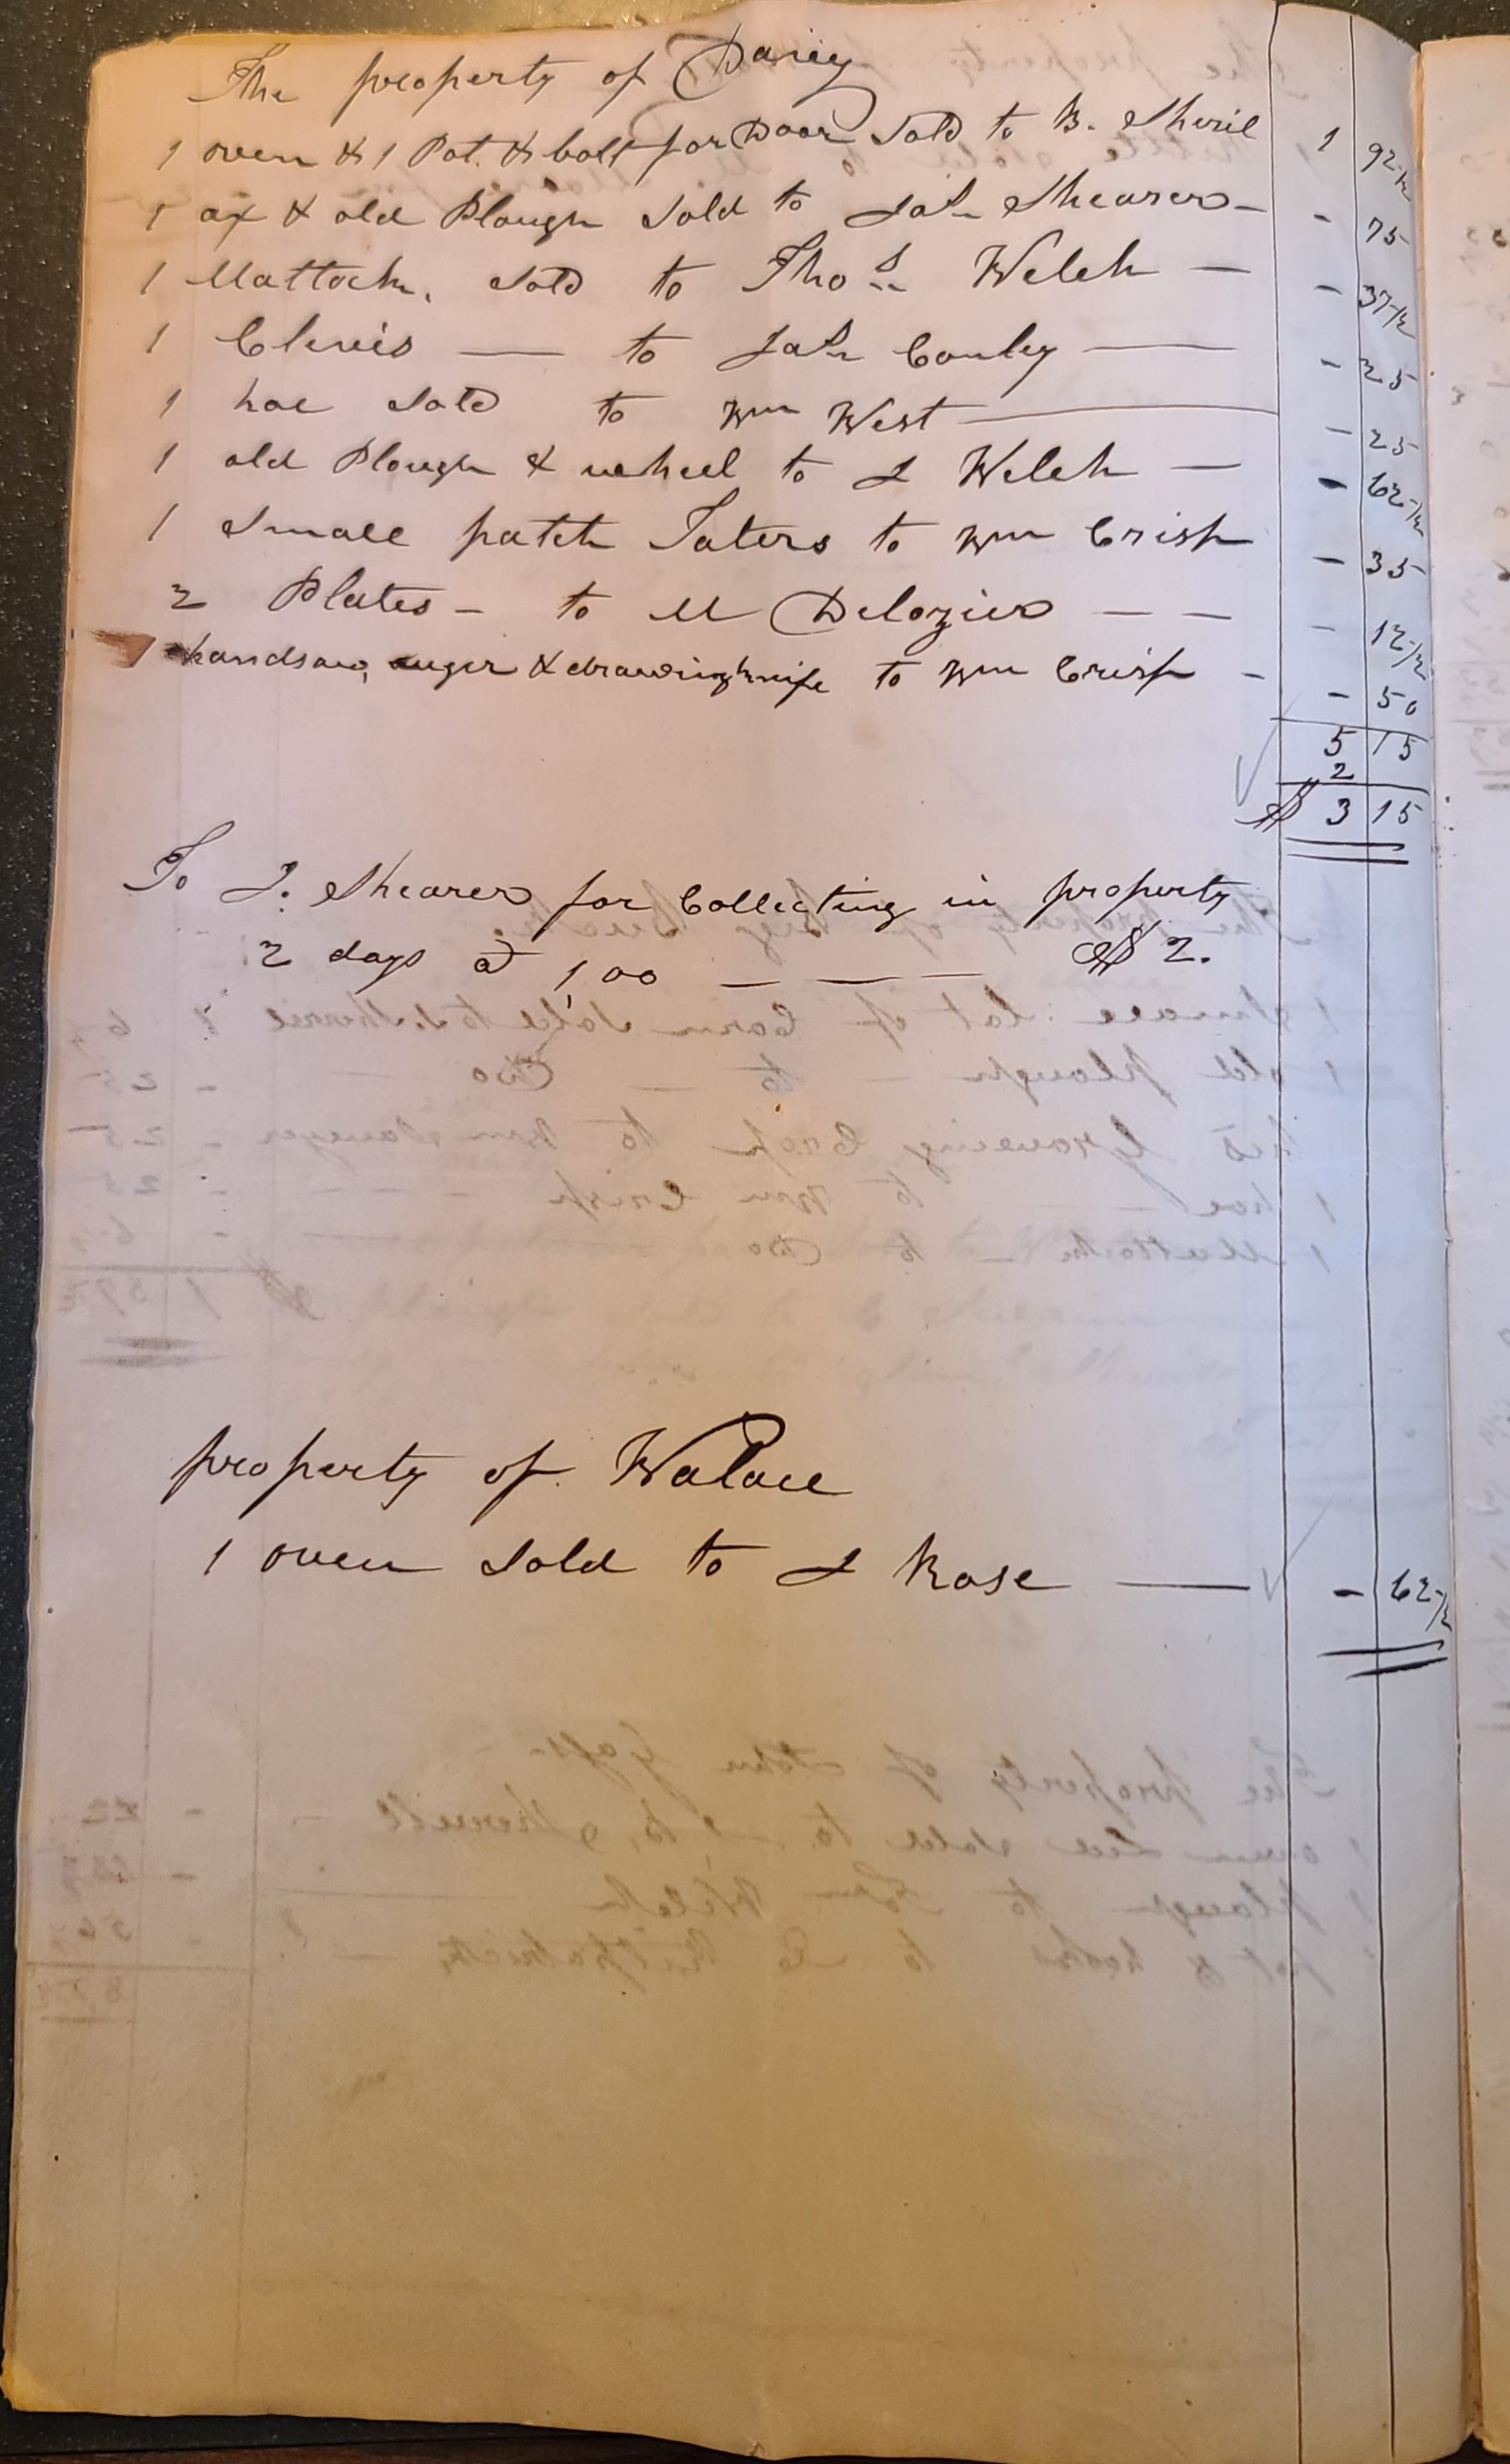 The property of Dairy
1 oven & 1 Pot. & bolt for Door Sold to B. Sheril 1 92 1/2
1 ax & old Plough Sold to Jas Shearer - - 75
1 Mattock. Sold to Thos Welch — - 37 1/2
1 Clevis — to Jas Conley — - 25
1 hoe Sold to Wm West — - 25
1 old Plough & wheel to J Welch — - 62 1/2
1 Small patch Taters to Wm Crisp - 35
2 Plates - to M Delozier — — - 12 1/2
handsaw, auger & drawingknife to Wm Crisp - - 50
5 15
2
$ 3 15
To J. Shearer for Collecting in property
2 days @ 1,00 — — — $ 2.
property of Walace
1 oven Sold to J Rose — - 62 1/2